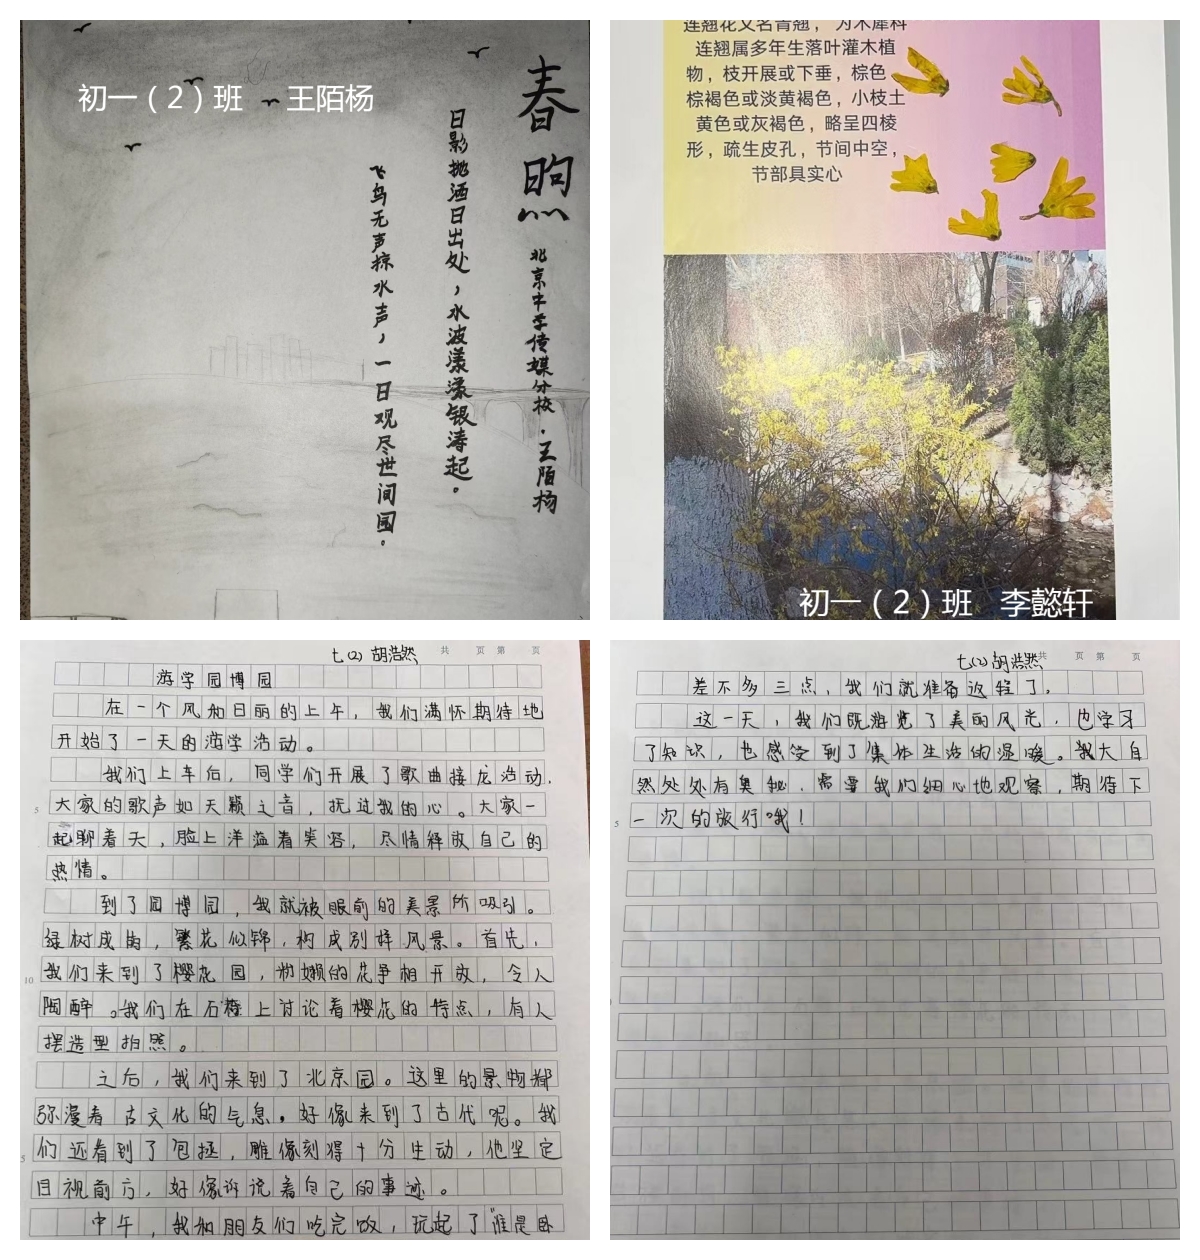 初一（2）班 王陌杨
春煦
北京中学传媒分校·王陌杨
日影挑洒日出处，水波漾漾银涛起。
飞鸟无声掠水声，一日观尽世间园。
连翘花又名青翘，为木犀科
连翘属多年生落叶灌木植
物，枝开展或下垂，棕色、
棕褐色或淡黄褐色，小枝土
黄色或灰褐色，略呈四棱
形，疏生皮孔，节间中空，
节部具实心
初一（2）班 李懿轩
七(2) 胡浩然 共 页 第 页
游学园博园
在一个风和日丽的上午，我们满怀期待地
开始了一天的游学活动。
我们上车后，同学们开展了歌曲接龙活动，
5 大家的歌声如天籁之音，抚过我的心。大家一
起聊着天，脸上洋溢着笑容，尽情释放自己的
热情。
到了园博园，我就被眼前的美景所吸引。
绿树成荫，繁花似锦，构成别样风景。首先，
10 我们来到了樱花园，粉嫩的花争相开放，令人
陶醉。我们在石椅上讨论着樱花的特点，有人
摆造型拍照。
之后，我们来到了北京园。这里的景物都
弥漫着古文化的气息，好像来到了古代呢。我
5 们还看到了包拯，雕像刻得十分生动，他坚定
目视前方，好像诉说着自己的事迹。
中午，我和朋友们吃完饭，玩起了“谁是卧
七(2) 胡浩然 共 页 第 页
差不多三点，我们就准备返程了。
这一天，我们既游览了美丽风光，也学习
了知识，也感受到了集体生活的温暖。我大自
然处处有奥秘，需要我们细心地观察，期待下
5 一次的旅行哦！